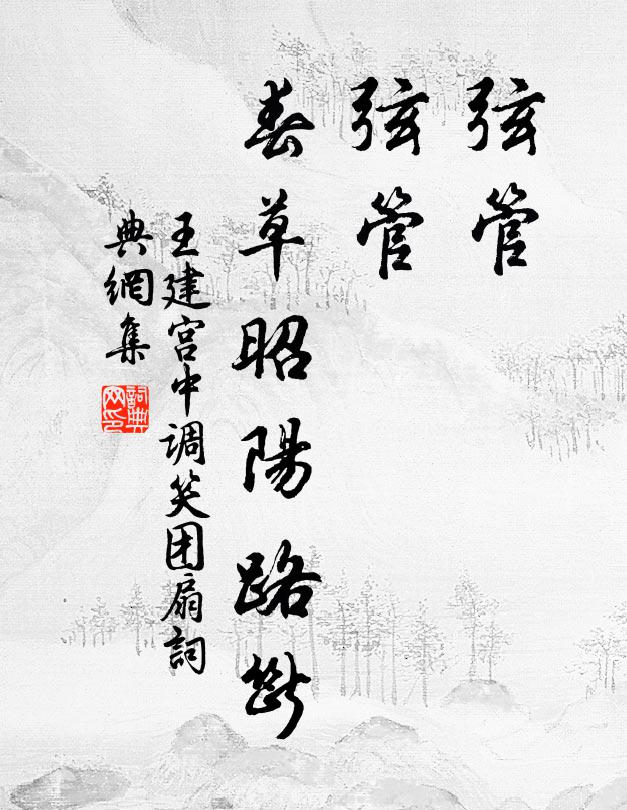 弦管
弦管
春草昭陽路斷
王建宫中调笑团扇詞
典網集
詞典
网印